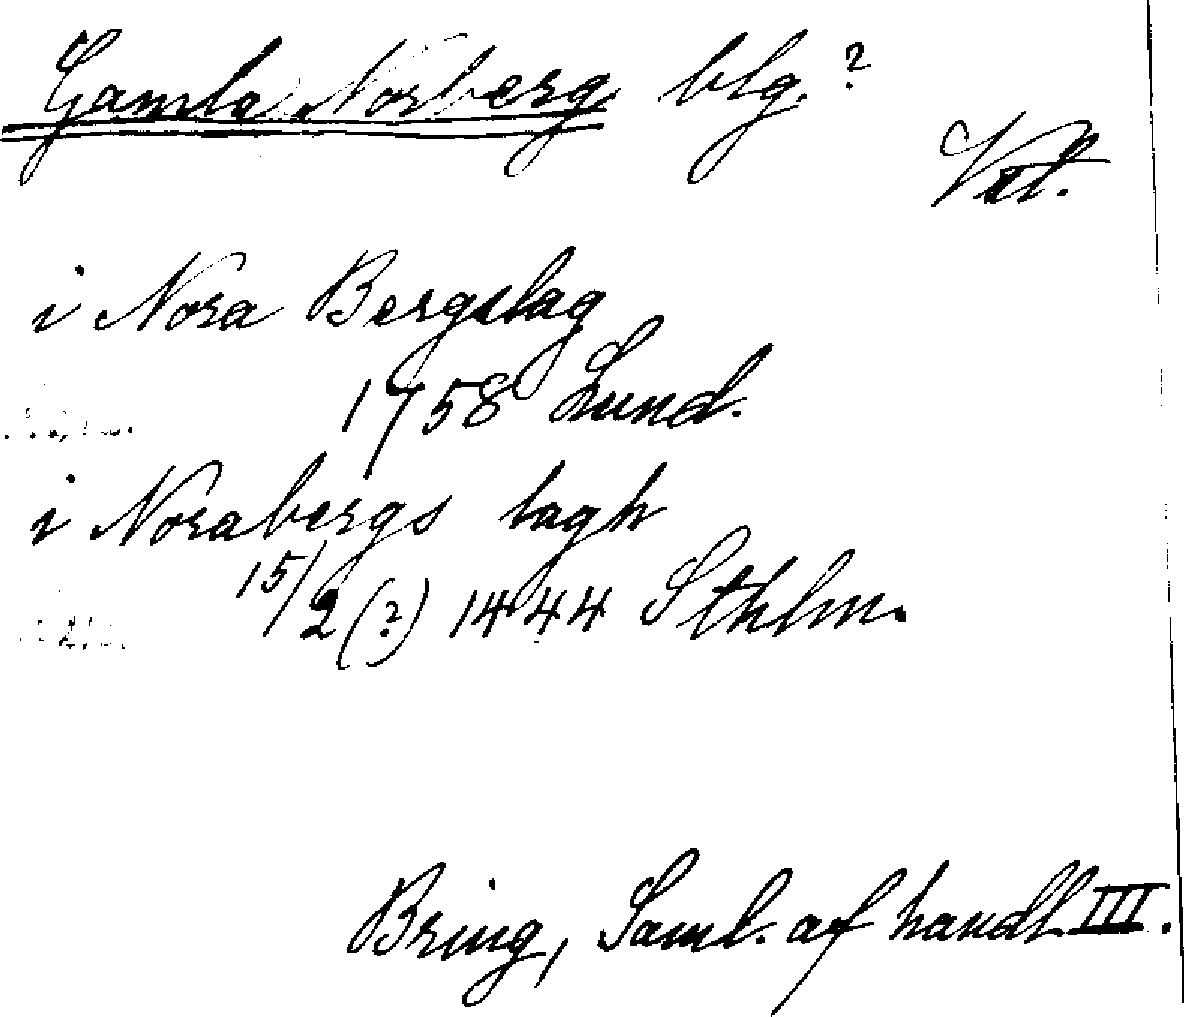 Gamla Norberg blg.?
Vstl.
i Nora Bergslag
1758 Lund.
i Norabergs lagh
15/2 (?) 1444 Sthlm.
Bring, Saml. af handl III.